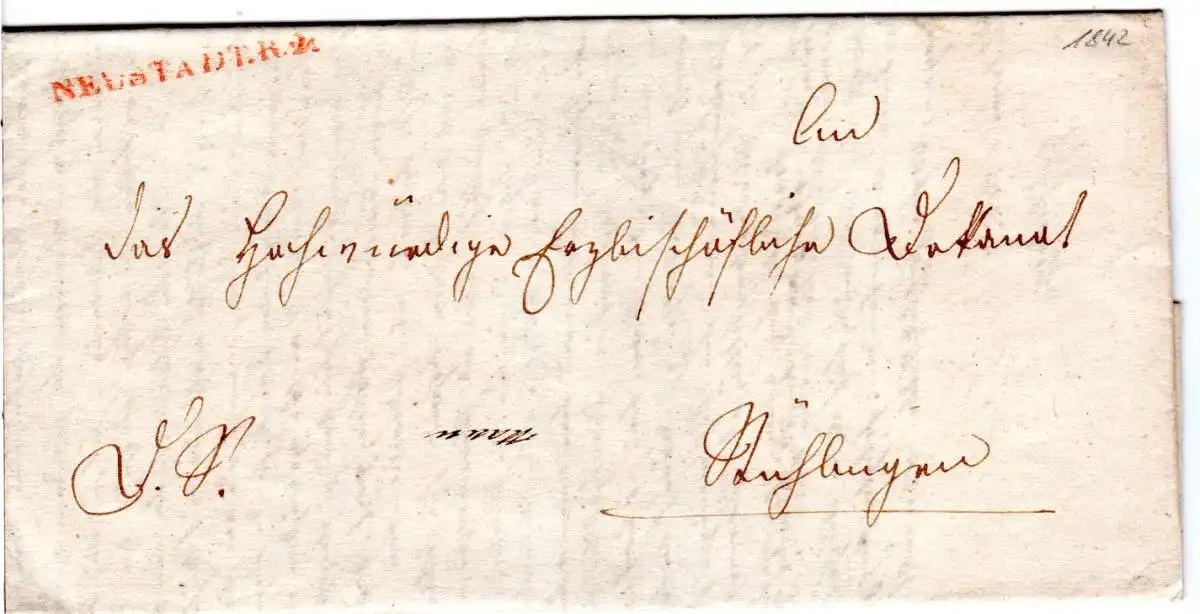 NEUSTADT.R.2.
1842
An
das Hochwürdige Erzbischöfliche Dekanat
D. S.
Stühlingen